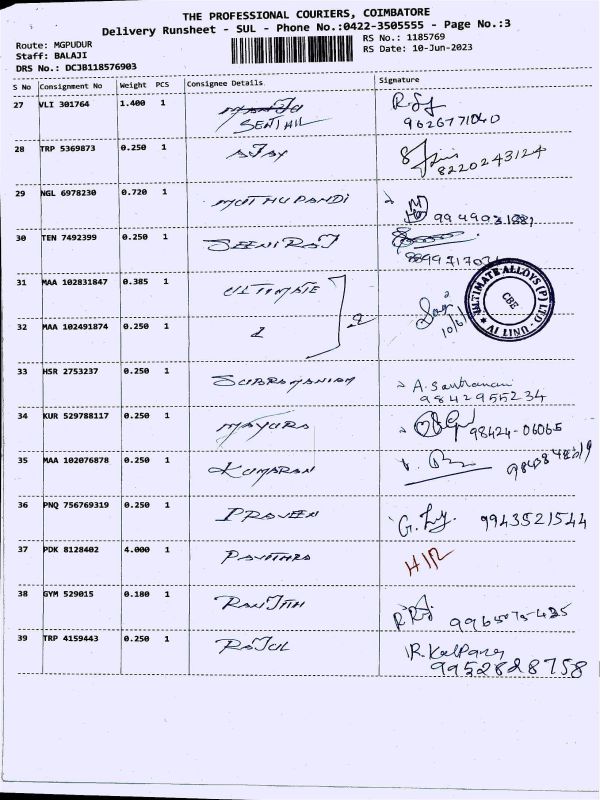 THE PROFESSIONAL COURIERS, COIMBATORE
Delivery Runsheet - SUL - Phone No.:0422-3505555 - Page No.:3
Route: MGPUDUR
Staff: BALAJI
DRS No.: DCJB118576903
RS No.: 1185769
RS Date: 10-Jun-2023
S No Consignment No Weight PCS Consignee Details Signature
27 VLI 301764 1.400 1 SENTHIL
9626771040
28 TRP 5369873 0.250 1 AJAY
8220243124
29 NGL 6978230 0.720 1 MUTHUPANDI
30 TEN 7492399 0.250 1 SEENIRAJ
31 MAA 102831847 0.385 1 ULTIMATE
32 MAA 102491874 0.250 1 2
10/6/
ULTIMATE ALLOYS (P) LTD
CBE
UNIT IV
33 HSR 2753237 0.250 1 SUBRAMANIAM A. Santhanam
9842955234
34 KUR 529788117 0.250 1 MAYURA 98424-06065
35 MAA 102076878 0.250 1 KUMARAN
36 PNQ 756769319 0.250 1 PRAVEEN 9943521544
37 PDK 8128402 4.000 1 PAVITHRA
38 GYM 529015 0.180 1 RANJITH 99650 75-425
39 TRP 4159443 0.250 1 RAJUL R. Kalpana
9952828758